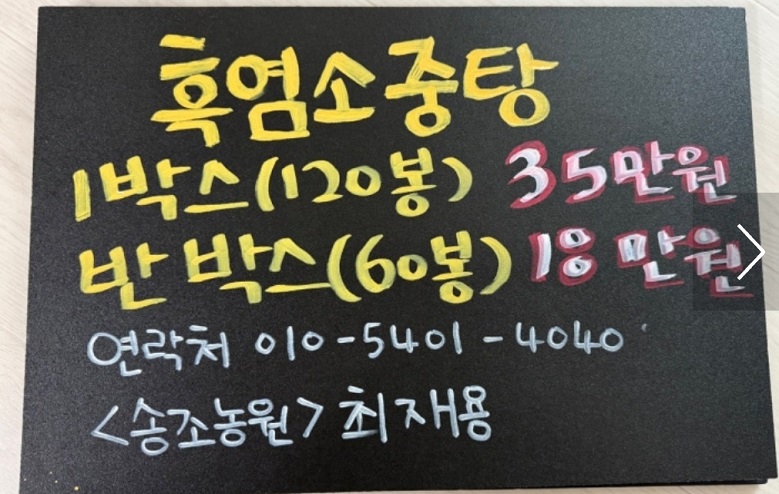 흑염소중탕
1박스(120봉) 35만원
반박스(60봉) 18만원
연락처 010-5401-4040
<송조농원> 최재용